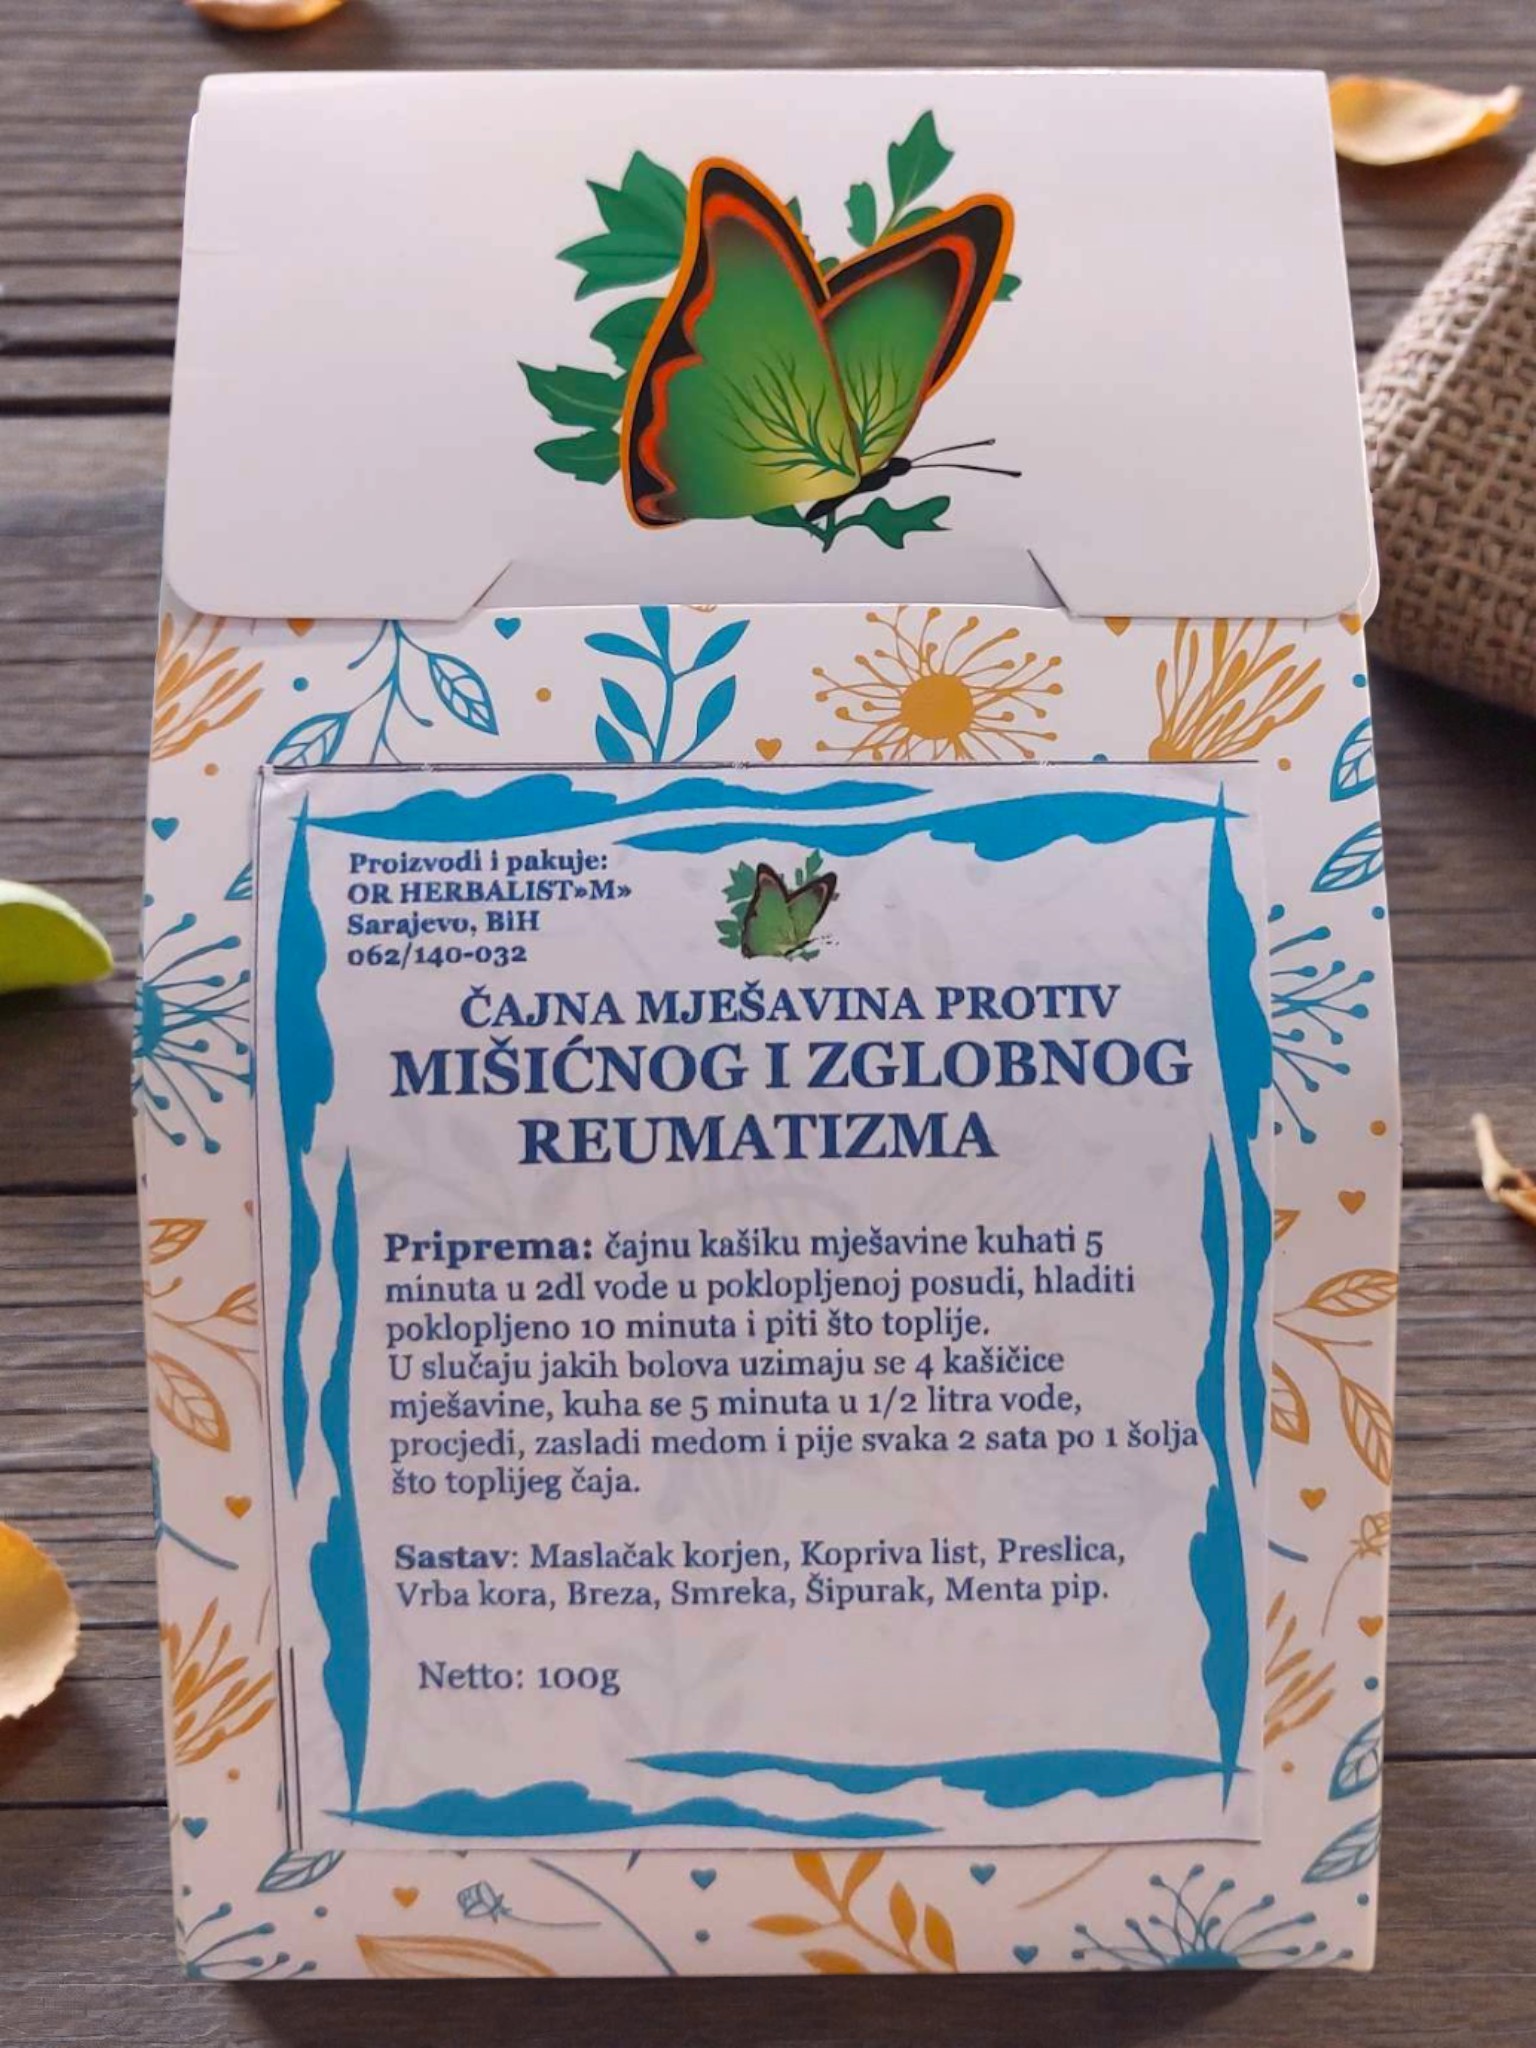 Proizvodi i pakuje:
OR HERBALIST»M»
Sarajevo, BiH
062/140-032
ČAJNA MJEŠAVINA PROTIV
MIŠIĆNOG I ZGLOBNOG
REUMATIZMA
Priprema: čajnu kašiku mješavine kuhati 5
minuta u 2dl vode u poklopljenoj posudi, hladiti
poklopljeno 10 minuta i piti što toplije.
U slučaju jakih bolova uzimaju se 4 kašičice
mješavine, kuha se 5 minuta u 1/2 litra vode,
procjedi, zasladi medom i pije svaka 2 sata po 1 šolja
što toplijeg čaja.
Sastav: Maslačak korjen, Kopriva list, Preslica,
Vrba kora, Breza, Smreka, Šipurak, Menta pip.
Netto: 100g